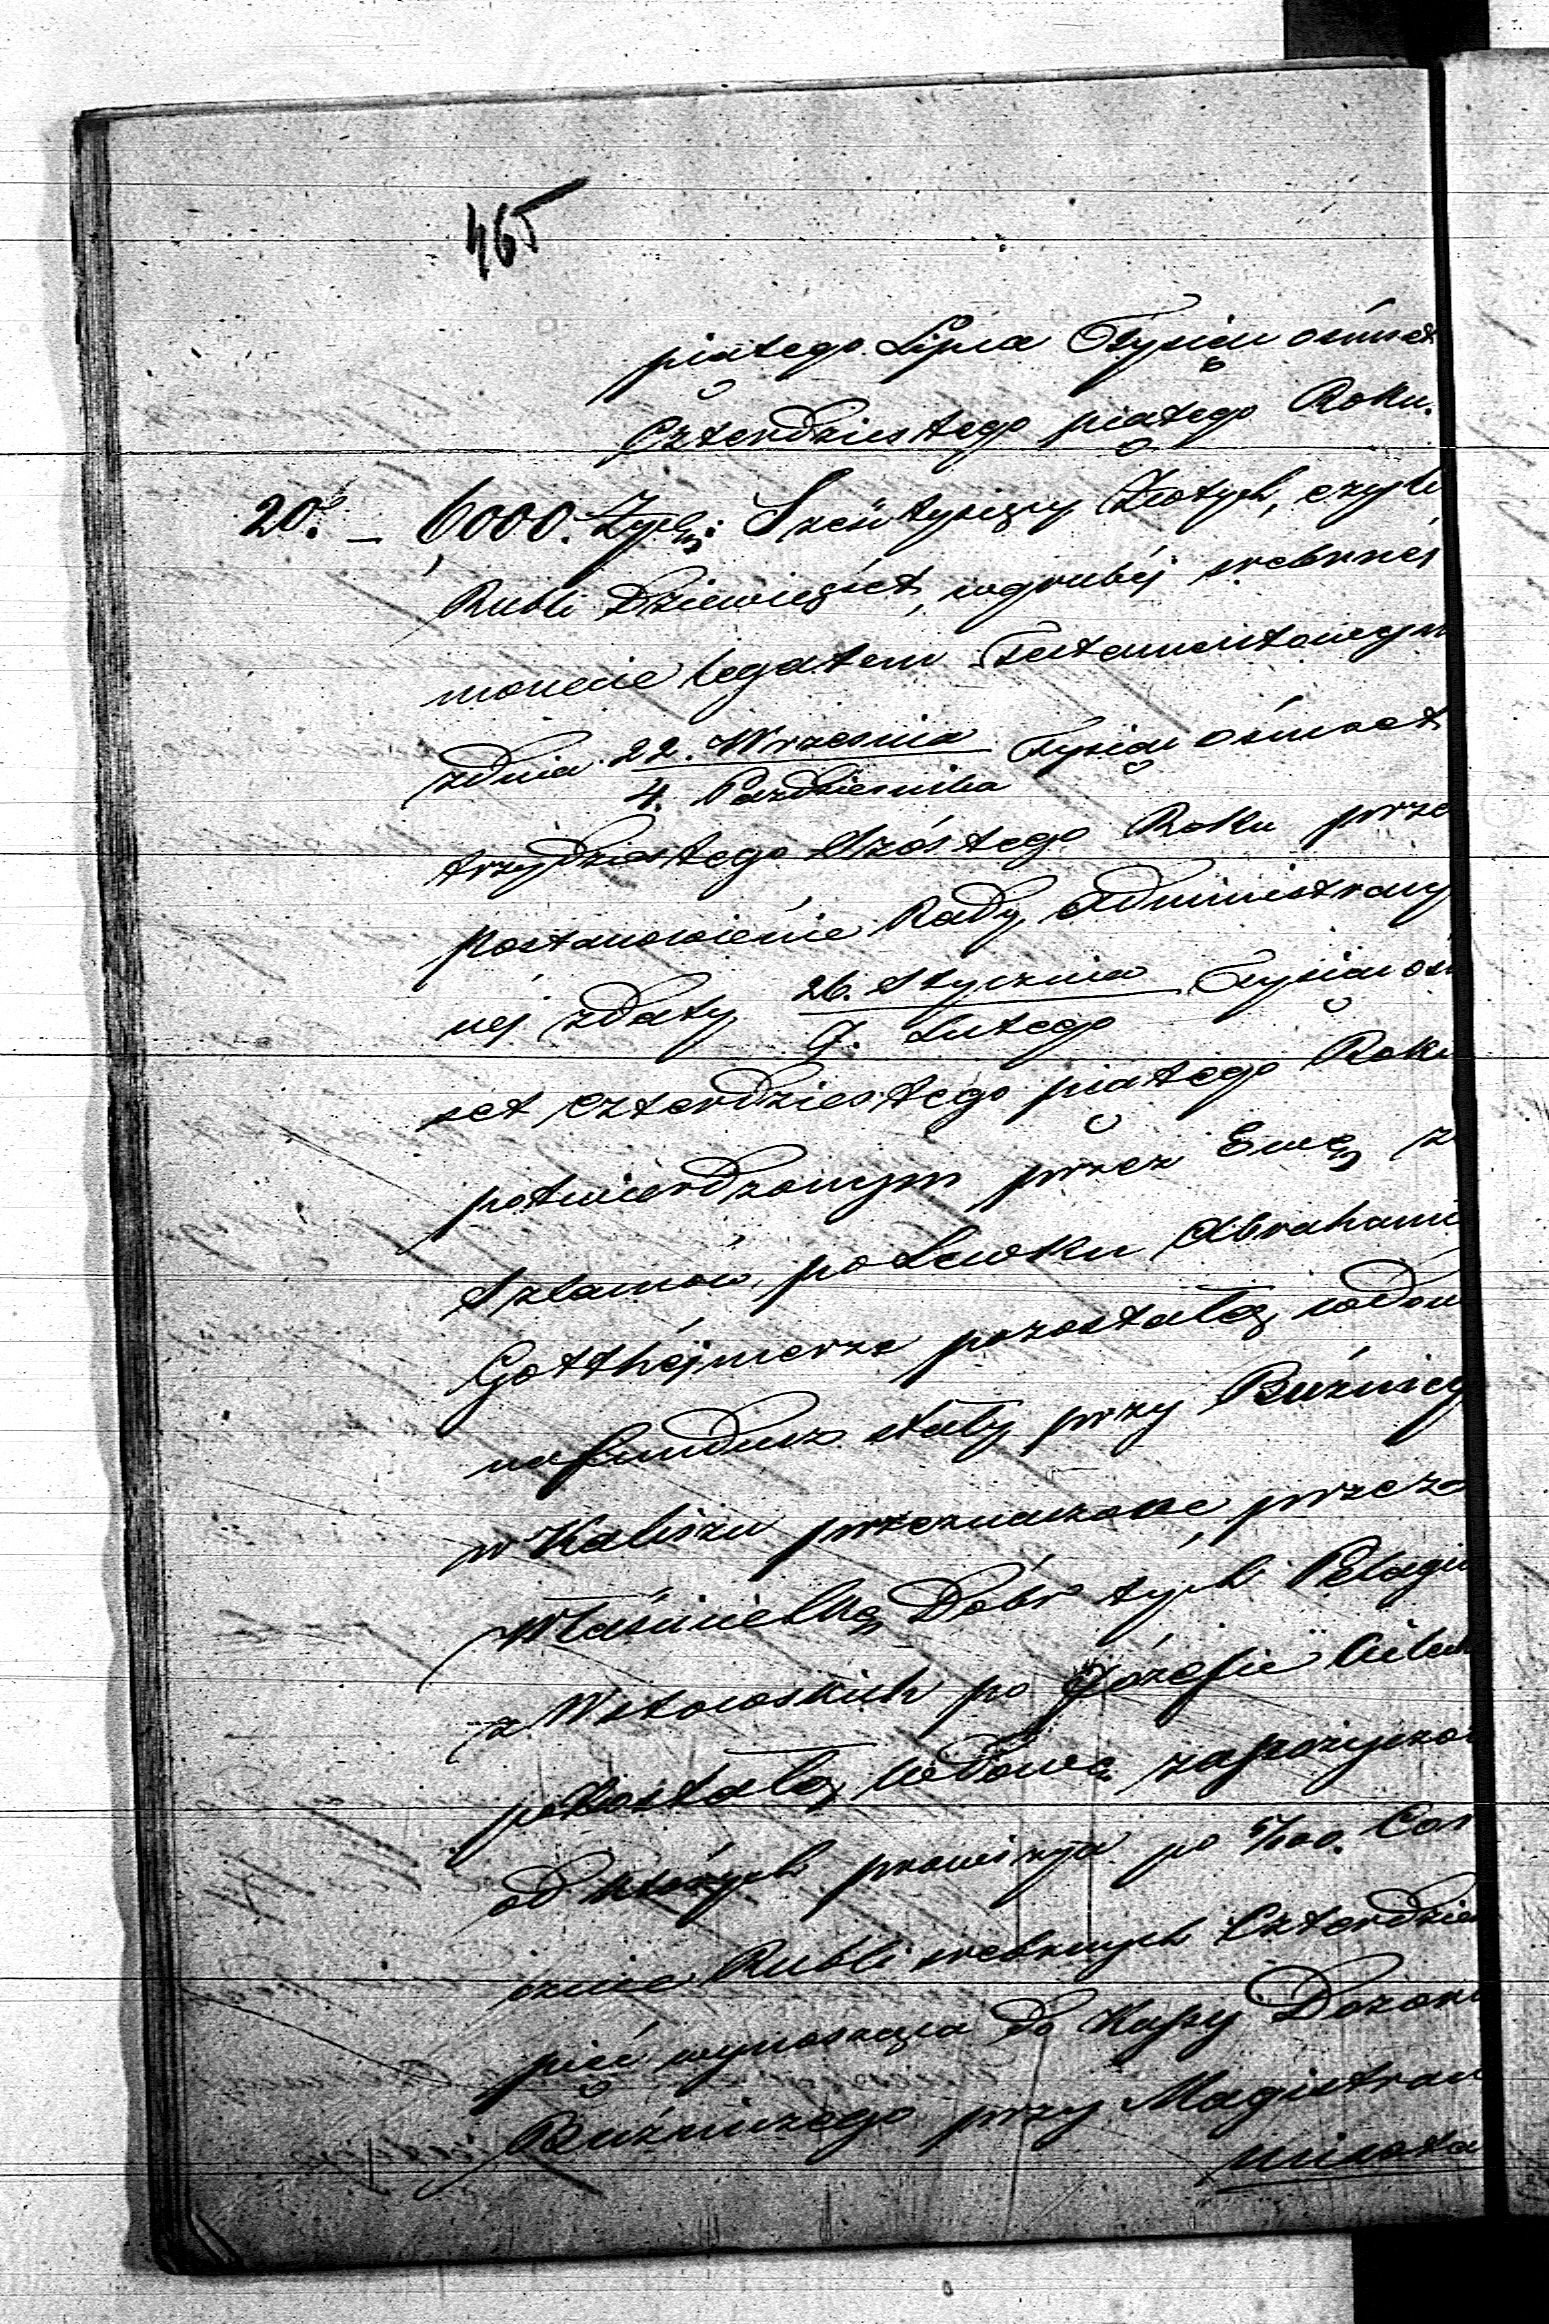 465
piątego Lipca Tysiąc ośmset
Czterdziestego piątego Roku.
20. – 6000. Złp: Sześć tysięcy Złotych, czyli
Rubli Dziewięćset, w grubéj srebrnéj
monecie legatem Testamentowym
z dnia 22. Września Tysiąc ośmset
4. Października
trzydziestego szóstego Roku prze
postanowienie Rady Administracyj
néj z daty 26. Stycznia Tysiąc oś
7. Lutego
set czterdziestego piątego Roku
potwierdzonym przez Ewę z
Szlamów, po Lewku Abrahamie
Gotthejmerze pozostałą wdow
na fundusz stały przy Bużnicy
w Kaliszu przeznaczone, przeza
Właścicielkę Dóbr tych Pelagią
z Wstowskich po Józefie
pozostałą wdowę zapożyczon
od których prowizya po 5/100. Co
cznie Rubli srebrnych Czterdzieś
pięć wynosząca do Kassy Dozoru
Bużniczego przy Magistrac
miasta